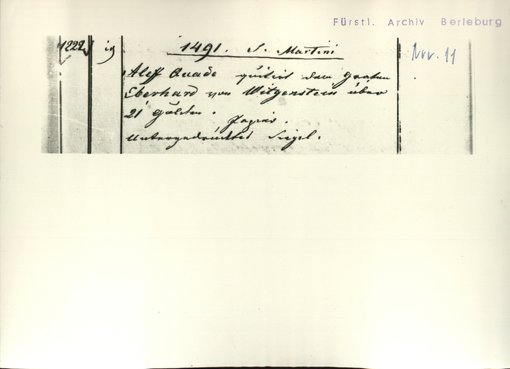 Fürstl. Archiv Berleburg
1222 1491. S. Martini Nov. 11
Aleff Quade quitirt dem Grafen
Eberhard von Witgenstein über
21 Gulden.
Papier.
Untergedrücktes Siegel.